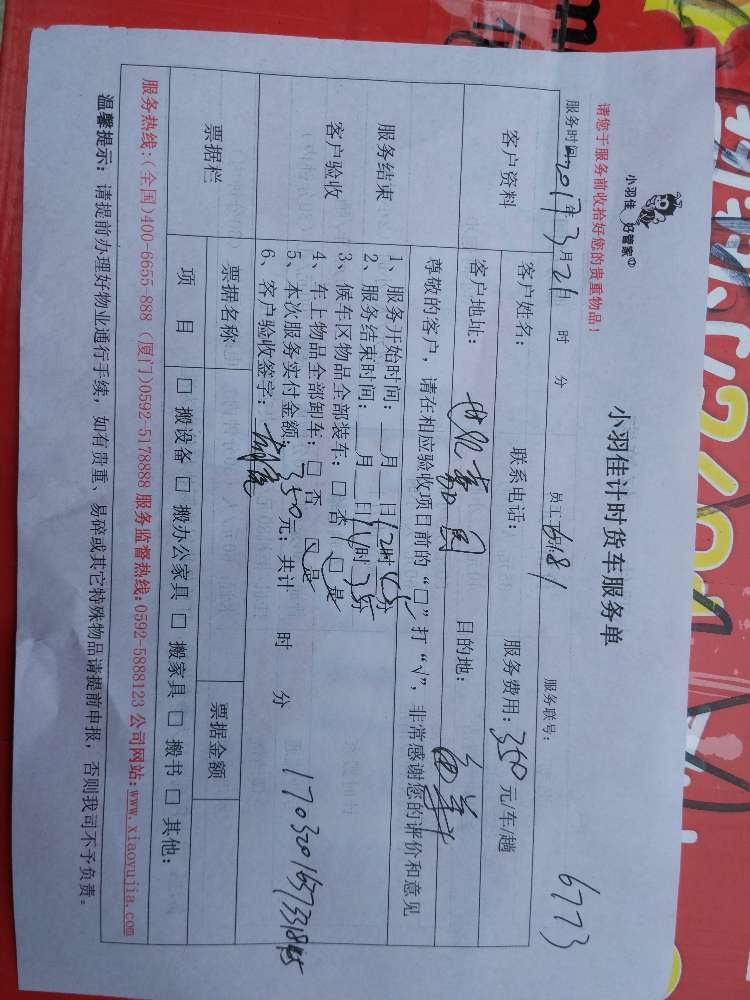 小羽佳 好管家
小羽佳计时货车服务单
6773
请您于服务前收拾好您的贵重物品！
服务时间 2017年3月21日 时 分 员工 6181 服务联号：
客户资料 客户姓名： 联系电话： 服务费用：350元/车/趟
客户地址： 世纪嘉园 目的地：
尊敬的客户，请在相应验收项目前的“□”打“√”，非常感谢您的评价和意见
服务结束
客户验收
1、服务开始时间： 月 日12时 分
2、服务结束时间： 月 日 时 分
3、候车区物品全部装车：□ 否 □ 是
4、车上物品全部卸车：□ 否 □ 是
5、本次服务实付金额：350元；共计 时 分
6、客户验收签字：
票据栏 票据名称 票据金额
项 目 □ 搬设备 □ 搬办公家具 □ 搬家具 □ 搬书 □ 其他：
服务热线：(全国)400-6655-888 (厦门)0592-5178888 服务监督热线:0592-5888123 公司网站:www.xiaoyujia.com
温馨提示：请提前办理好物业通行手续，如有贵重、易碎或其它特殊物品请提前申报，否则我司不予负责。